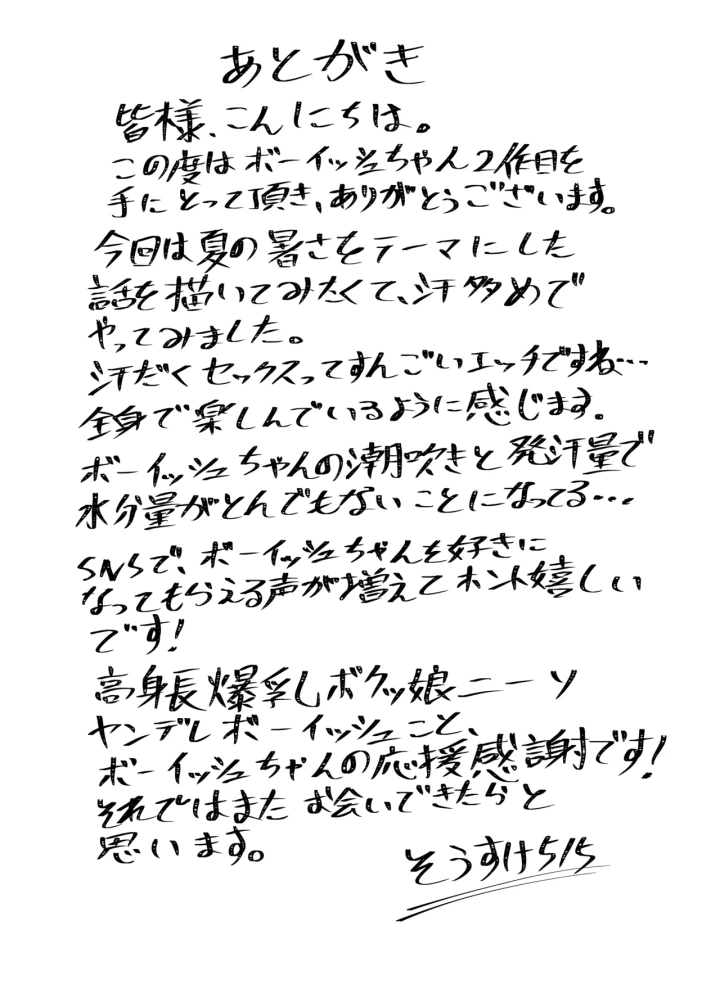 あとがき
皆様、こんにちは。
この度はボーイッシュちゃん2作目を
手にとって頂き、ありがとうございます。
今回は夏の暑さをテーマにした
話を描いてみたくて、汗多めで
やってみました。
汗だくセックスってすんごいエッチですね…
全身で楽しんでいるように感じます。
ボーイッシュちゃんの潮吹きと発汗量で
水分量がとんでもないことになってる…
SNSで、ボーイッシュちゃんを好きに
なってもらえる声が増えてホント嬉しい
です!
高身長爆乳しボクッ娘ニーソ
ヤンデレボーイッシュこと、
ボーイッシュちゃんの応援感謝です!
それではまたお会いできたらと
思います。
そうすけ515